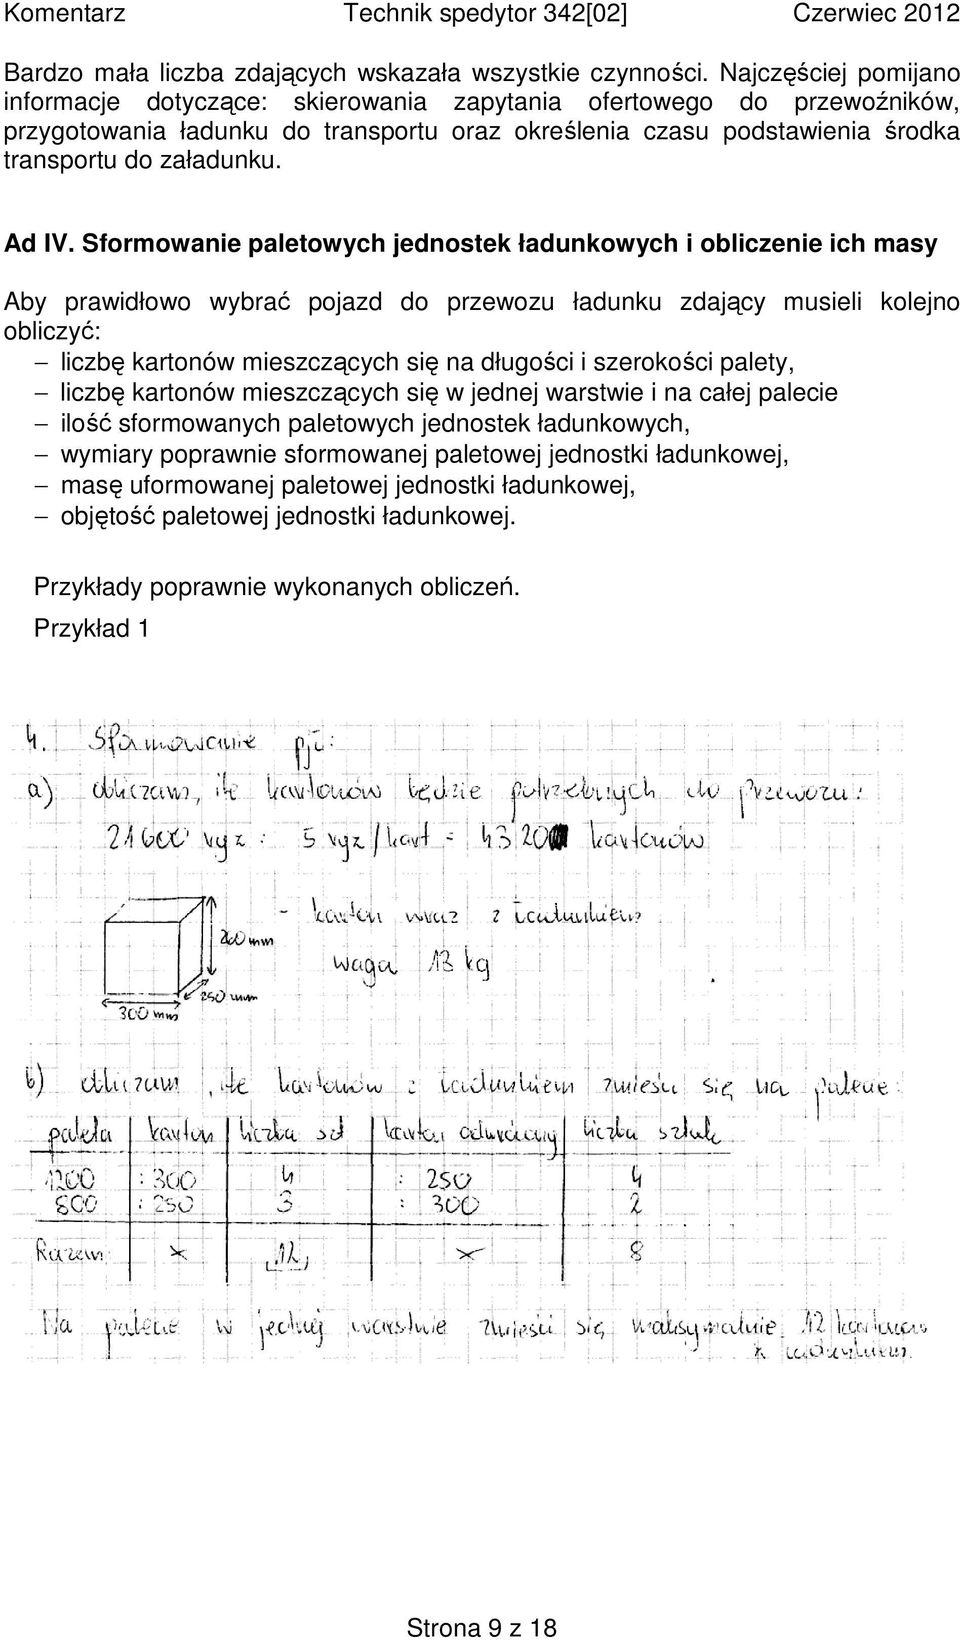 Komentarz Technik spedytor 342[02] Czerwiec 2012
Bardzo mała liczba zdających wskazała wszystkie czynności. Najczęściej pomijano
informacje dotyczące: skierowania zapytania ofertowego do przewoźników,
przygotowania ładunku do transportu oraz określenia czasu podstawienia środka
transportu do załadunku.
Ad IV. Sformowanie paletowych jednostek ładunkowych i obliczenie ich masy
Aby prawidłowo wybrać pojazd do przewozu ładunku zdający musieli kolejno
obliczyć:
− liczbę kartonów mieszczących się na długości i szerokości palety,
− liczbę kartonów mieszczących się w jednej warstwie i na całej palecie
− ilość sformowanych paletowych jednostek ładunkowych,
− wymiary poprawnie sformowanej paletowej jednostki ładunkowej,
− masę uformowanej paletowej jednostki ładunkowej,
− objętość paletowej jednostki ładunkowej.
Przykłady poprawnie wykonanych obliczeń.
Przykład 1
4. Sformowanie pjł:
a) obliczam, ile kartonów będzie potrzebnych do przewozu:
21600 ryz : 5 ryz/kart = 4320 kartonów
- karton wraz z ładunkiem
260 mm
waga 13 kg
250 mm
300 mm
b) obliczam, ile kartonów z ładunkiem zmieści się na palecie:
paleta karton liczba szt karton odwrócony liczba sztuk
1200 : 300 4 : 250 4
800 : 250 3 : 300 2
Razem x 12 x 8
Na palecie w jednej warstwie zmieści się maksymalnie 12 kartonów
z ładunkiem.
Strona 9 z 18